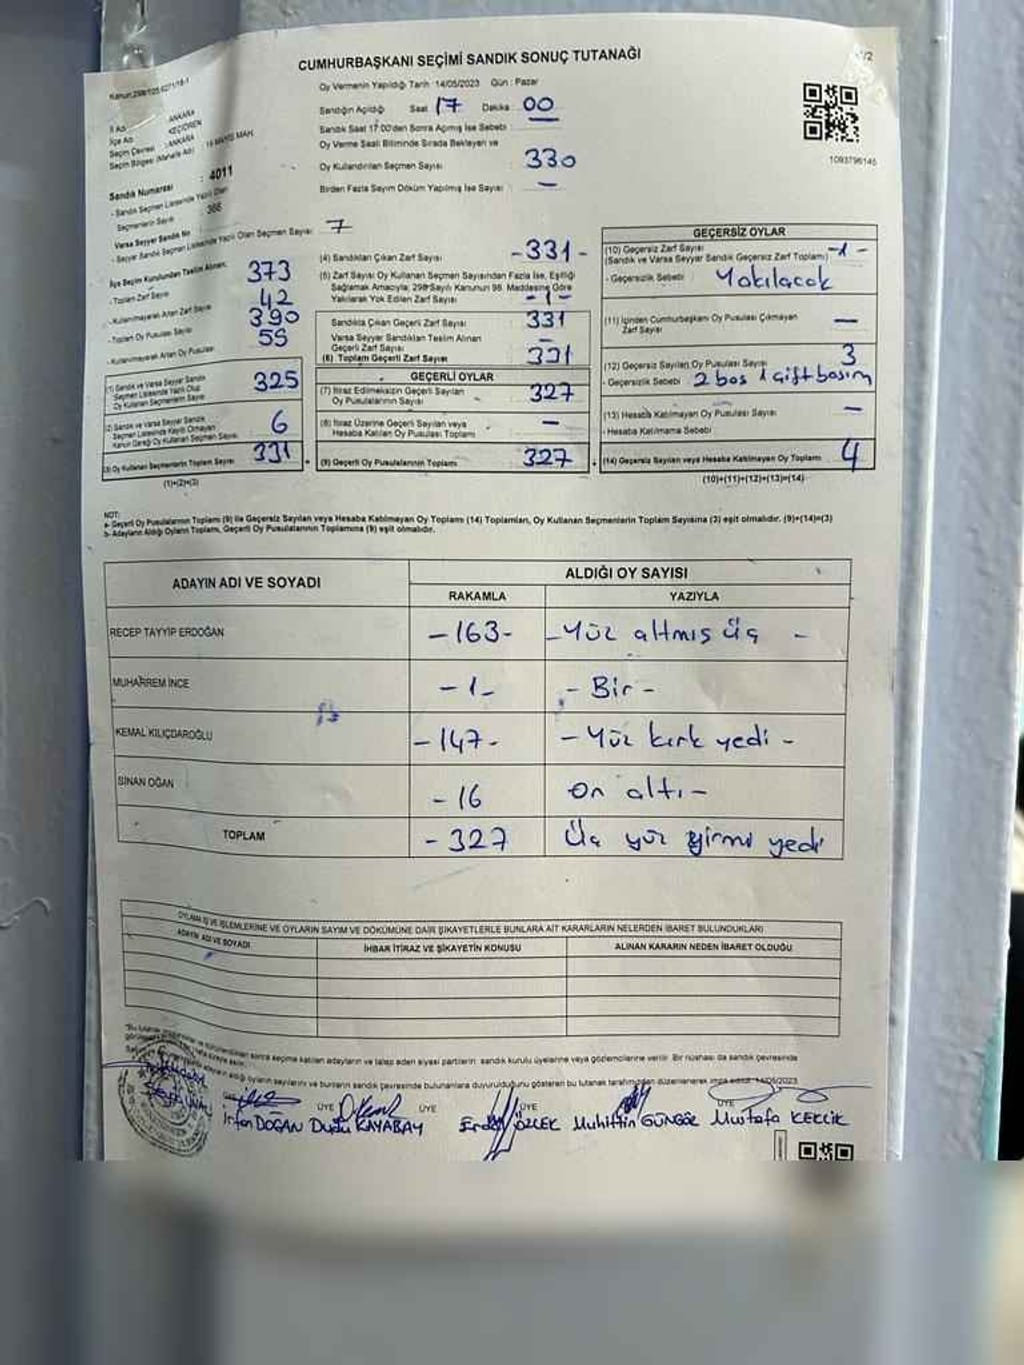 CUMHURBAŞKANI SEÇİMİ SANDIK SONUÇ TUTANAĞI
1/2
Oy Vermenin Yapıldığı Tarih : 14/05/2023 Gün : Pazar
Sandığın Açıldığı Saat 17 Dakika 00
Sandık Saat 17:00'den Sonra Açılmış İse Sebebi
Oy Verme Saati Bitiminde Sırada Bekleyen ve
Oy Kullandırılan Seçmen Sayısı 330
Birden Fazla Sayım Döküm Yapılmış İse Sayısı —
1093796145
İl Adı : ANKARA
İlçe Adı : KEÇİÖREN
Seçim Çevresi : ANKARA
Seçim Bölgesi (Mahalle Adı) : 19 MAYIS MAH.
Sandık Numarası : 4011
- Sandık Seçmen Listesinde Yazılı Olan
Seçmenlerin Sayısı : 366
Varsa Seyyar Sandık No
- Seyyar Sandık Seçmen Listesinde Yazılı Olan Seçmen Sayısı: 7
İlçe Seçim Kurulundan Teslim Alınan;
- Toplam Zarf Sayısı 373
- Kullanılmayarak Artan Zarf Sayısı 42
- Toplam Oy Pusulası Sayısı 390
- Kullanılmayarak Artan Oy Pusulası 55
(1) Sandık ve Varsa Seyyar Sandık
Seçmen Listesinde Yazılı Olup
Oy Kullanan Seçmenlerin Sayısı 325
(2) Sandık ve Varsa Seyyar Sandık
Seçmen Listesinde Kayıtlı Olmayan
Kanun Gereği Oy Kullanan Seçmen Sayısı 6
(3) Oy Kullanan Seçmenlerin Toplam Sayısı 331
(1)+(2)=(3)
(4) Sandıktan Çıkan Zarf Sayısı -331-
(5) Zarf Sayısı Oy Kullanan Seçmen Sayısından Fazla İse, Eşitliği
Sağlamak Amacıyla; 298 Sayılı Kanunun 98. Maddesine Göre
Yakılarak Yok Edilen Zarf Sayısı -1-
Sandıkta Çıkan Geçerli Zarf Sayısı 331
Varsa Seyyar Sandıktan Teslim Alınan
Geçerli Zarf Sayısı —
(6) Toplam Geçerli Zarf Sayısı 331
GEÇERLİ OYLAR
(7) İtiraz Edilmeksizin Geçerli Sayılan
Oy Pusulalarının Sayısı 327
(8) İtiraz Üzerine Geçerli Sayılan veya
Hesaba Katılan Oy Pusulaları Toplamı —
(9) Geçerli Oy Pusulalarının Toplamı 327
GEÇERSİZ OYLAR
(10) Geçersiz Zarf Sayısı
(Sandık ve Varsa Seyyar Sandık Geçersiz Zarf Toplamı) -1-
- Geçersizlik Sebebi : Yakılacak
(11) İçinden Cumhurbaşkanı Oy Pusulası Çıkmayan
Zarf Sayısı —
(12) Geçersiz Sayılan Oy Pusulası Sayısı 3
- Geçersizlik Sebebi : 2 boş 1 çift basım
(13) Hesaba Katılmayan Oy Pusulası Sayısı —
- Hesaba Katılmama Sebebi
(14) Geçersiz Sayılan veya Hesaba Katılmayan Oy Toplamı 4
(10)+(11)+(12)+(13)=(14)
NOT:
a- Geçerli Oy Pusulalarının Toplamı (9) ile Geçersiz Sayılan veya Hesaba Katılmayan Oy Toplamı (14) Toplamları, Oy Kullanan Seçmenlerin Toplam Sayısına (3) eşit olmalıdır. (9)+(14)=(3)
b- Adayların Aldığı Oyların Toplamı, Geçerli Oy Pusulalarının Toplamına (9) eşit olmalıdır.
ADAYIN ADI VE SOYADI
ALDIĞI OY SAYISI
RAKAMLA YAZIYLA
RECEP TAYYİP ERDOĞAN -163- -Yüz altmış üç -
MUHARREM İNCE -1- - Bir -
KEMAL KILIÇDAROĞLU -147- - Yüz kırk yedi -
SİNAN OĞAN -16 on altı -
TOPLAM -327 Üç yüz yirmi yedi
OYLAMA İŞ VE İŞLEMLERİNE VE OYLARIN SAYIM VE DÖKÜMÜNE DAİR ŞİKAYETLERLE BUNLARA AİT KARARLARIN NELERDEN İBARET BULUNDUKLARI
ADAYIN ADI VE SOYADI İHBAR İTİRAZ VE ŞİKAYETİN KONUSU ALINAN KARARIN NEDEN İBARET OLDUĞU
seçime katılan adayların ve talep eden siyasi partilerin sandık kurulu üyelerine veya gözlemcilerine verilir. Bir nüshası da sandık çevresinde
adayların aldığı oyların sayılarını ve bunların sandık çevresinde bulunanlara duyurulduğunu gösteren bu tutanak tarafımızdan düzenlenerek imza edildi. 14/05/2023
ÜYE ÜYE ÜYE ÜYE
İrfan DOĞAN Duygu KAYABAY Erdem ÖZLEK Muhittin GÜNGÖR Mustafa KEKLİK